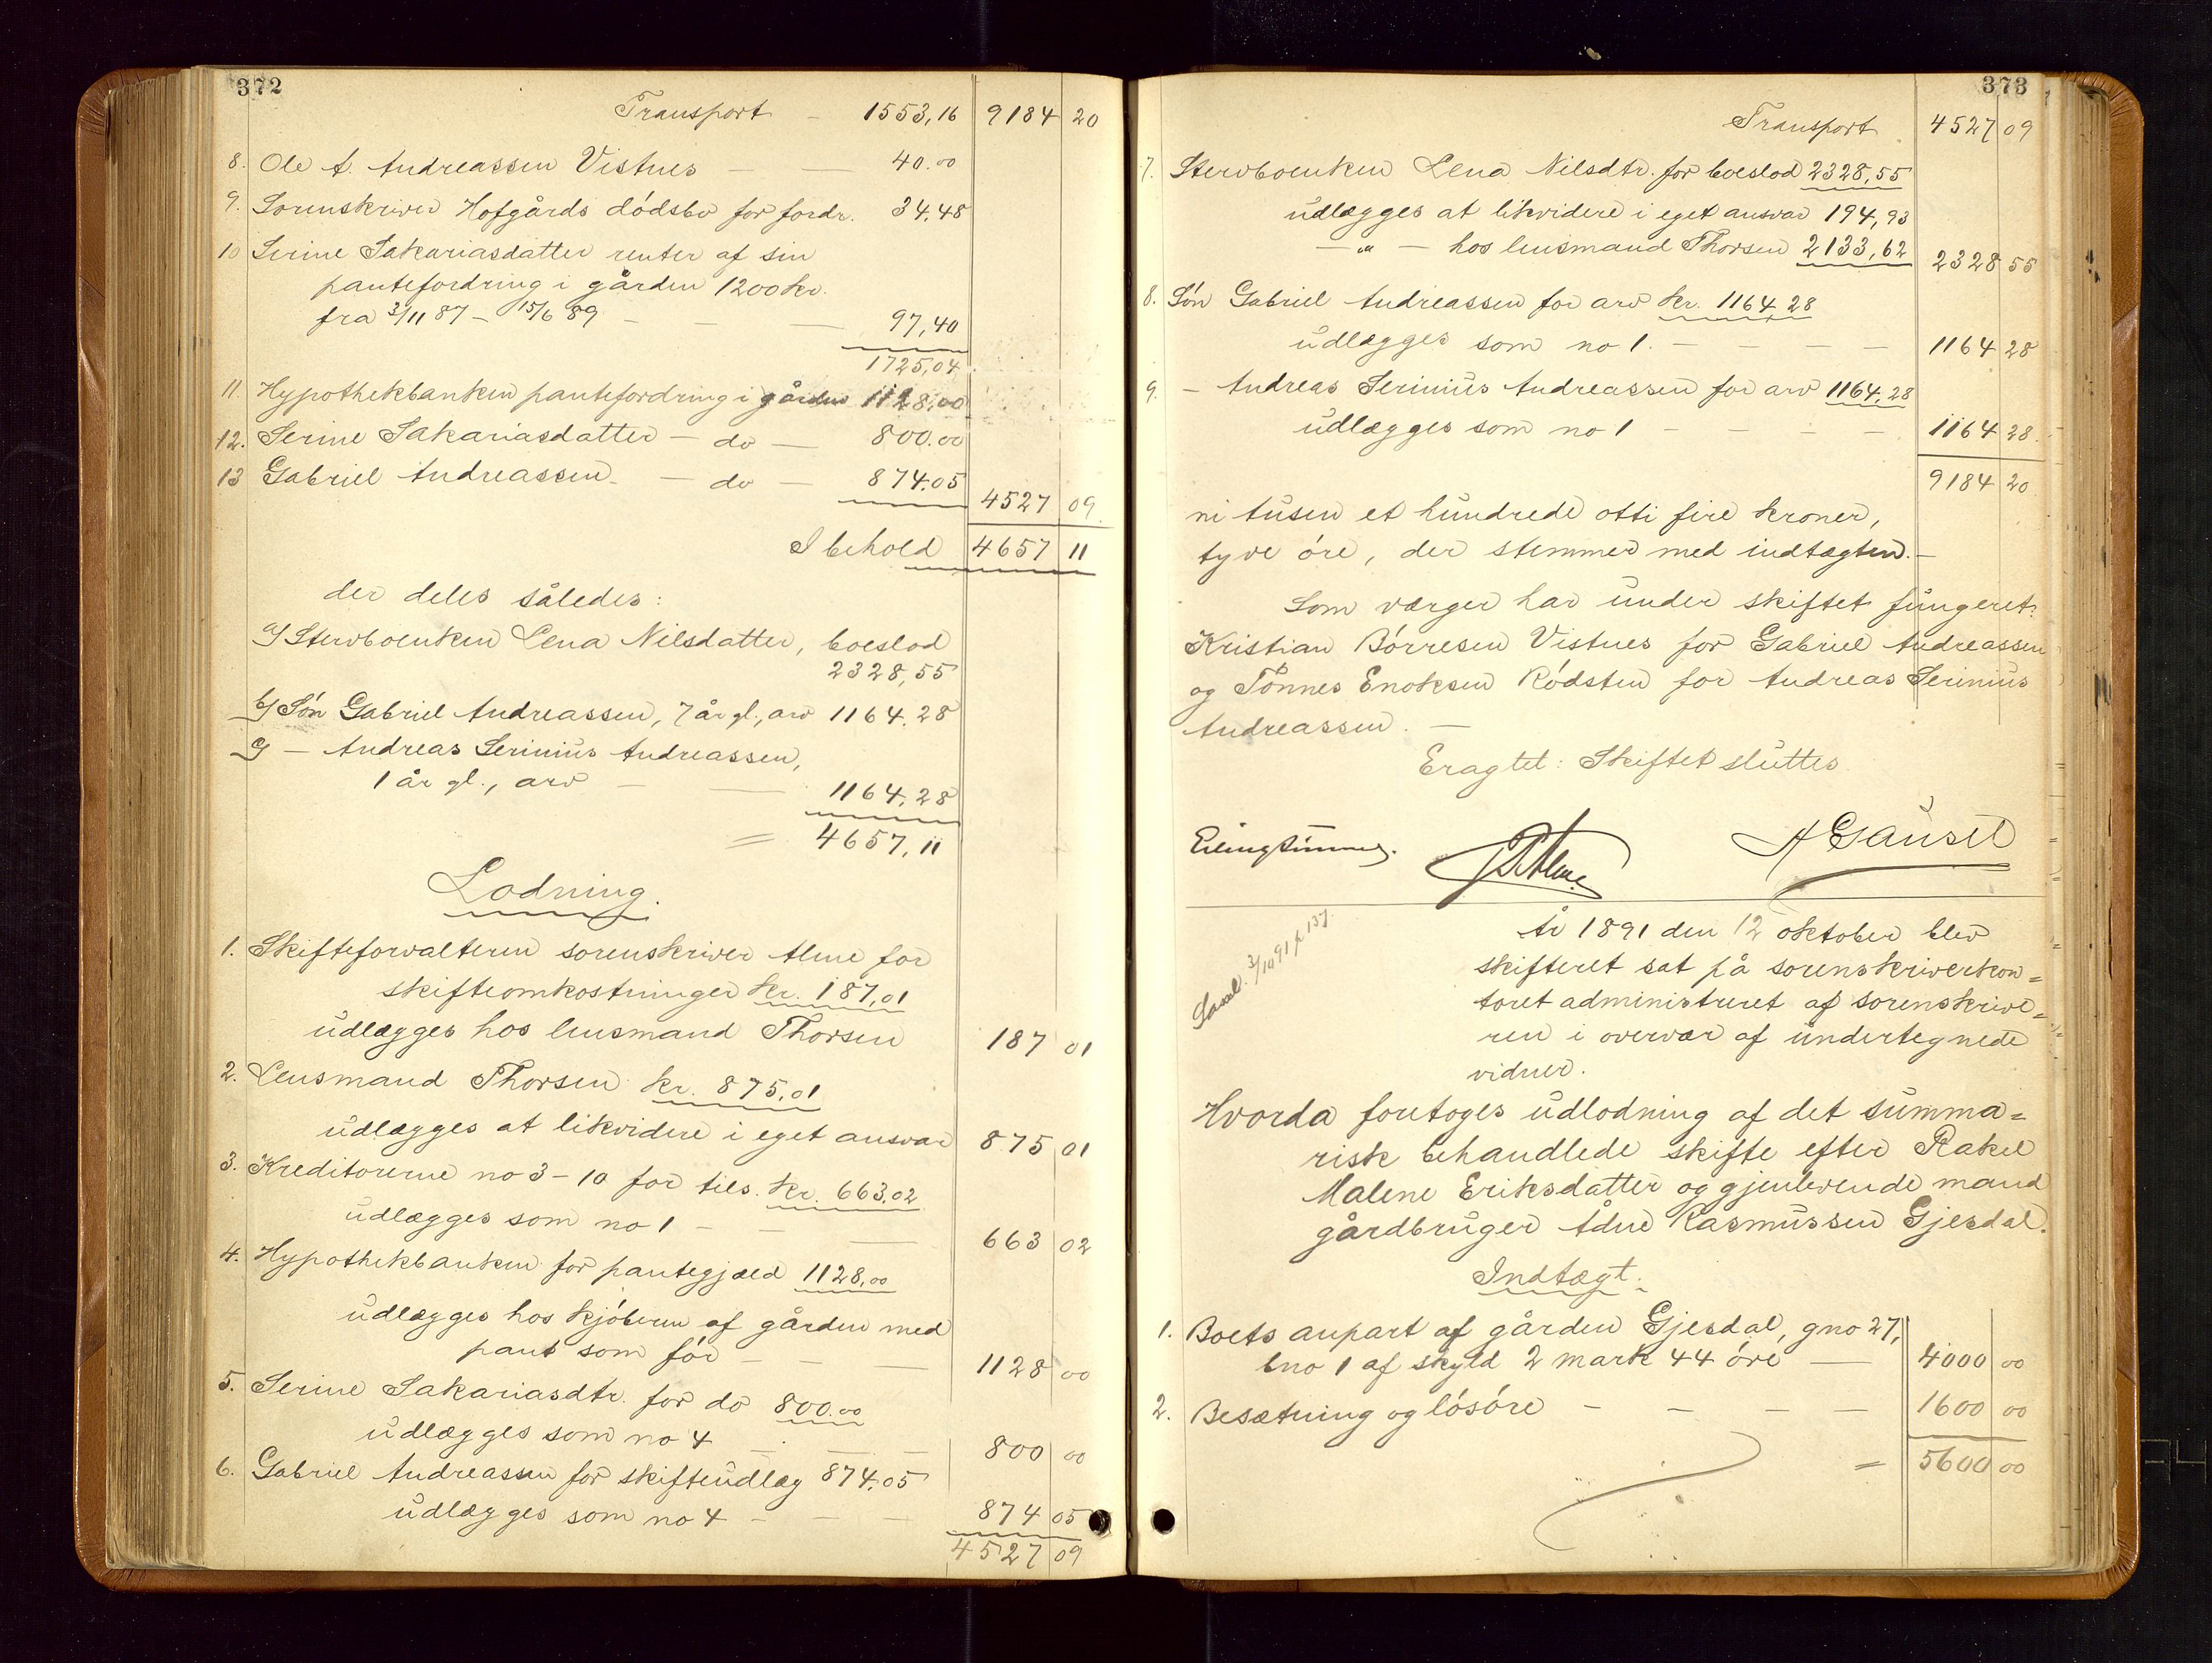 372
Transport - 1553,16 9184 20
8. Ole A. Andreassen Vistnes — — 40.00
9. Sorenskriver Hofgårds dødsbo for fordr. 34.48
10 Serine Sakariasdatter renter af sin
pantefordring i gården 1200 kr.
fra 3/11 87 - 15/6 89 - — — 97,40
1725,04
11. Hypothekbanken pantefordring i gården 1128,00
12. Serine Sakariasdatter - do — 800.00
13 Gabriel Andreassen - do — 874.05 4527 09
I behold 4657 11
der deles således:
a) Stervboenken Lena Nilsdatter, boeslod
2328,55
b) Søn Gabriel Andreassen, 7 år gl., arv 1164.28
c) — Andreas Serinius Andreassen,
1 år gl., arv — — 1164,28
= 4657,11
Lodning.
1. Skifteforvalteren sorenskriver Alme for
skifteomkostninger kr. 187,01
udlægges hos lensmand Thorsen 187 01
2. Lensmand Thorsen kr. 875,01
udlægges at likvidere i eget ansvar 875 01
3. Kreditorerne no 3-10 for tils. kr. 663.02
udlægges som no 1 - — — 663 02
4. Hypothekbanken for pantegjæld 1128,00
udlægges hos kjøberen af gården med
pant som før - — — 1128 00
5. Serine Sakariasdtr. for do 800.00
udlægges som no 4 — — — 800 00
6. Gabriel Andreassen for skifteudlæg 874.05
udlægges som no 4 - — — 874 05
4527 09
373
Transport 4527 09
7. Stervboenken Lena Nilsdtr. for boeslod 2328,55
udlægges at likvidere i eget ansvar 194,93
— " — hos lensmand Thorsen 2133,62 2328 55
8. Søn Gabriel Andreassen for arv kr. 1164,28
udlægges som no 1. — — — — 1164 28
9. — Andreas Serinius Andreassen for arv 1164.28
udlægges som no 1 — — — — 1164 28
9184 20
ni tusen et hundrede otti fire kroner,
tyve øre, der stemmer med indtægten.—
Som værger har under skiftet fungeret:
Kristian Børresen Vistnes for Gabriel Andreassen
og Tønnes Enoksen Rødsten for Andreas Serinius
Andreassen. —
Eragtet: Skiftet sluttes
A Gausel
År 1891 den 12 oktober blev
skifteret sat på sorenskriverkon=
toret administreret af sorenskrive=
ren i overvær af undertegnede
vidner.
Hvorda foretoges udlodning af det summa=
risk behandlede skifte efter Rakel
Malene Eriksdatter og gjenlevende mand
gårdbruger Ådne Rasmussen Gjesdal.
Indtægt.
1. Boets anpart af gården Gjesdal, gno 27,
bno 1 af skyld 2 mark 44 øre — 4000 00
2. Besætning og løsøre - — — — 1600 00
= 5600 00